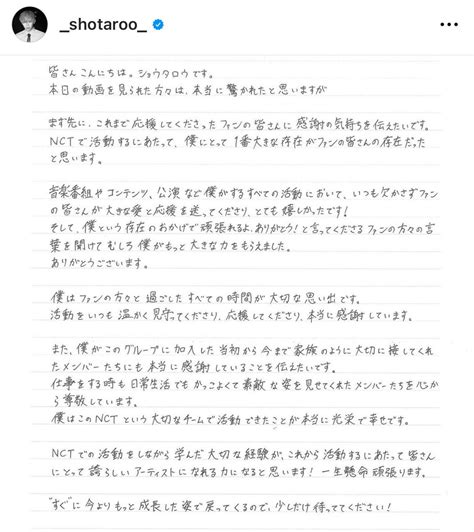 _shotaroo_
皆さんこんにちは。ショウタロウです。
本日の動画を見られた方々は、本当に驚かれたと思いますが
まず先に、これまで応援してくださったファンの皆さんに感謝の気持ちを伝えたいです。
NCTで活動するにあたって、僕にとって1番大きな存在がファンの皆さんの存在だった
と思います。
音楽番組やコンテンツ、公演など僕がするすべての活動において、いつも欠かさずファン
の皆さんが大きな愛と応援を送ってくださり、とても嬉しかったです!
そして、僕という存在のおかげで頑張れるよ、ありがとう!と言ってくださるファンの方々の言
葉を聞けてむしろ僕がもっと大きな力をもらえました。
ありがとうございます。
僕はファンの方々と過ごしたすべての時間が大切な思い出です。
活動をいつも温かく見守てくださり、応援してくださり、本当に感謝しています。
また、僕がこのグループに加入した当初から今まで家族のように大切に接してくれ
たメンバーたちにも本当に感謝していることを伝えたいです。
仕事をする時も日常生活でもかっこよくて素敵な姿を見せてくれたメンバーたちを心か
ら尊敬しています。
僕はこのNCTという大切なチームで活動できたことが本当に光栄で幸せです。
NCTでの活動をしながら学んだ大切な経験が、これから活動するにあたって皆さん
にとって誇らしいアーティストになれる力になると思います!一生懸命頑張ります。
"すぐに"今よりもっと成長した姿で戻ってくるので、少しだけ待っててください!